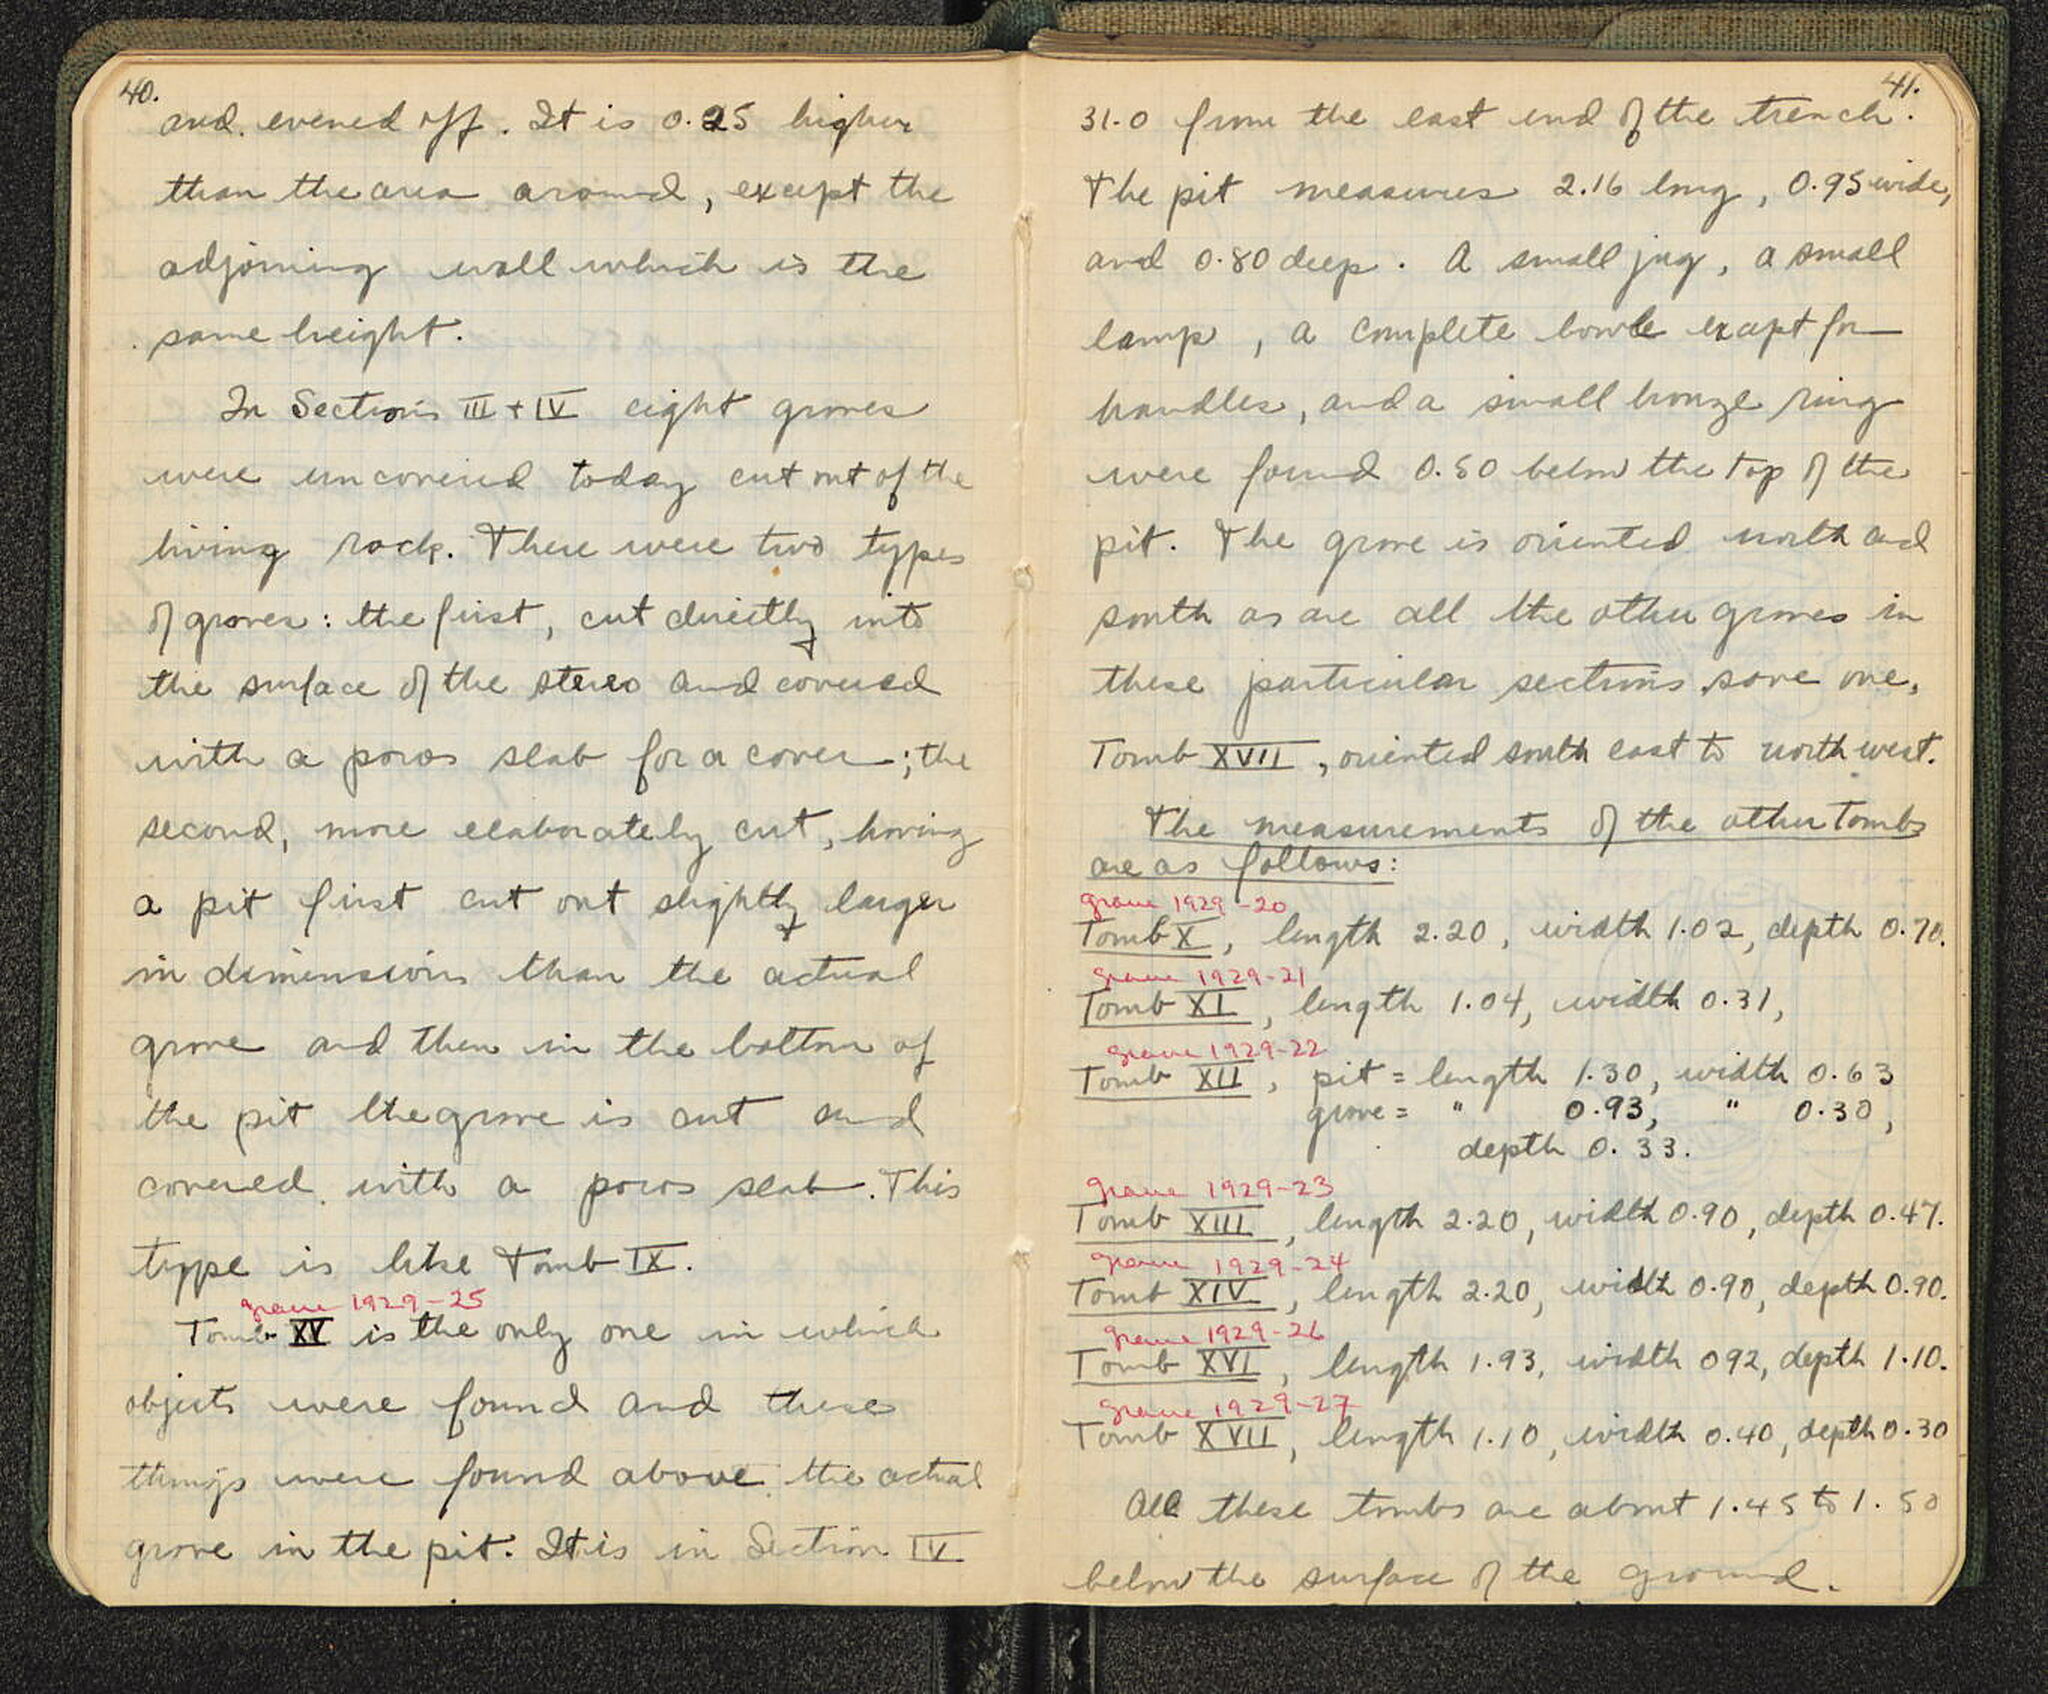 40.
and evened off. It is 0.25 higher
than the area around, except the
adjoining wall which is the
same height.
In Sections III + IV eight graves
were uncovered today cut out of the
living rock. There were two types
of graves: the first, cut directly into
the surface of the stereo and covered
with a poros slab for a cover; the
second, more elaborately cut, having
a pit first cut out slightly larger
in dimensions than the actual
grave and then in the bottom of
the pit the grave is cut and
covered with a poros slab. This
type is like Tomb IX.
grave 1929-25
Tomb XV is the only one in which
objects were found and these
things were found above the actual
grave in the pit. It is in Section IV
41.
31.0 from the east end of the trench.
The pit measures 2.16 long, 0.95 wide,
and 0.80 deep. A small jug, a small
lamp, a complete bowl except for
handles, and a small bronze ring
were found 0.50 below the top of the
pit. The grave is oriented north and
south as are all the other graves in
these particular sections save one,
Tomb XVII, oriented south east to north west.
The measurements of the other Tombs
are as follows:
grave 1929-20
Tomb X, length 2.20, width 1.02, depth 0.70.
grave 1929-21
Tomb XI, length 1.04, width 0.31,
grave 1929-22
Tomb XII, pit = length 1.30, width 0.63
grave = " 0.93, " 0.30,
depth 0.33.
grave 1929-23
Tomb XIII, length 2.20, width 0.90, depth 0.47.
grave 1929-24
Tomb XIV, length 2.20, width 0.90, depth 0.90.
grave 1929-26
Tomb XVI, length 1.93, width 092, depth 1.10.
grave 1929-27
Tomb XVII, length 1.10, width 0.40, depth 0.30
All these tombs are about 1.45 to 1.50
below the surface of the ground.